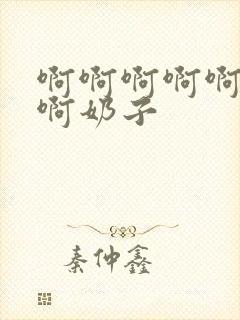 啊啊啊啊啊
啊奶子
秦仲鑫